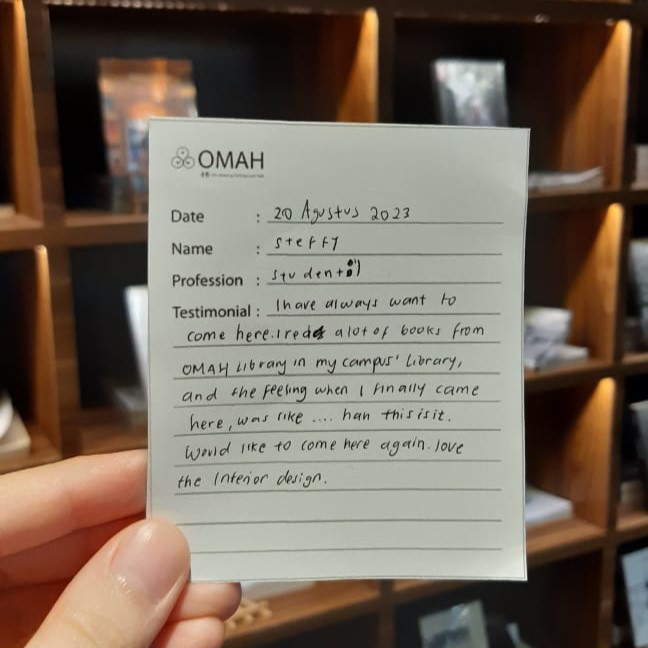 OMAH
Date : 20 Agustus 2023
Name : steffy
Profession : student :)
Testimonial : I have always want to
come here. I red a lot of books from
OMAH Library in my campus' Library,
and the feeling when I finally came
here, was like .... hah this is it.
Would like to come here again. love
the Interior design.